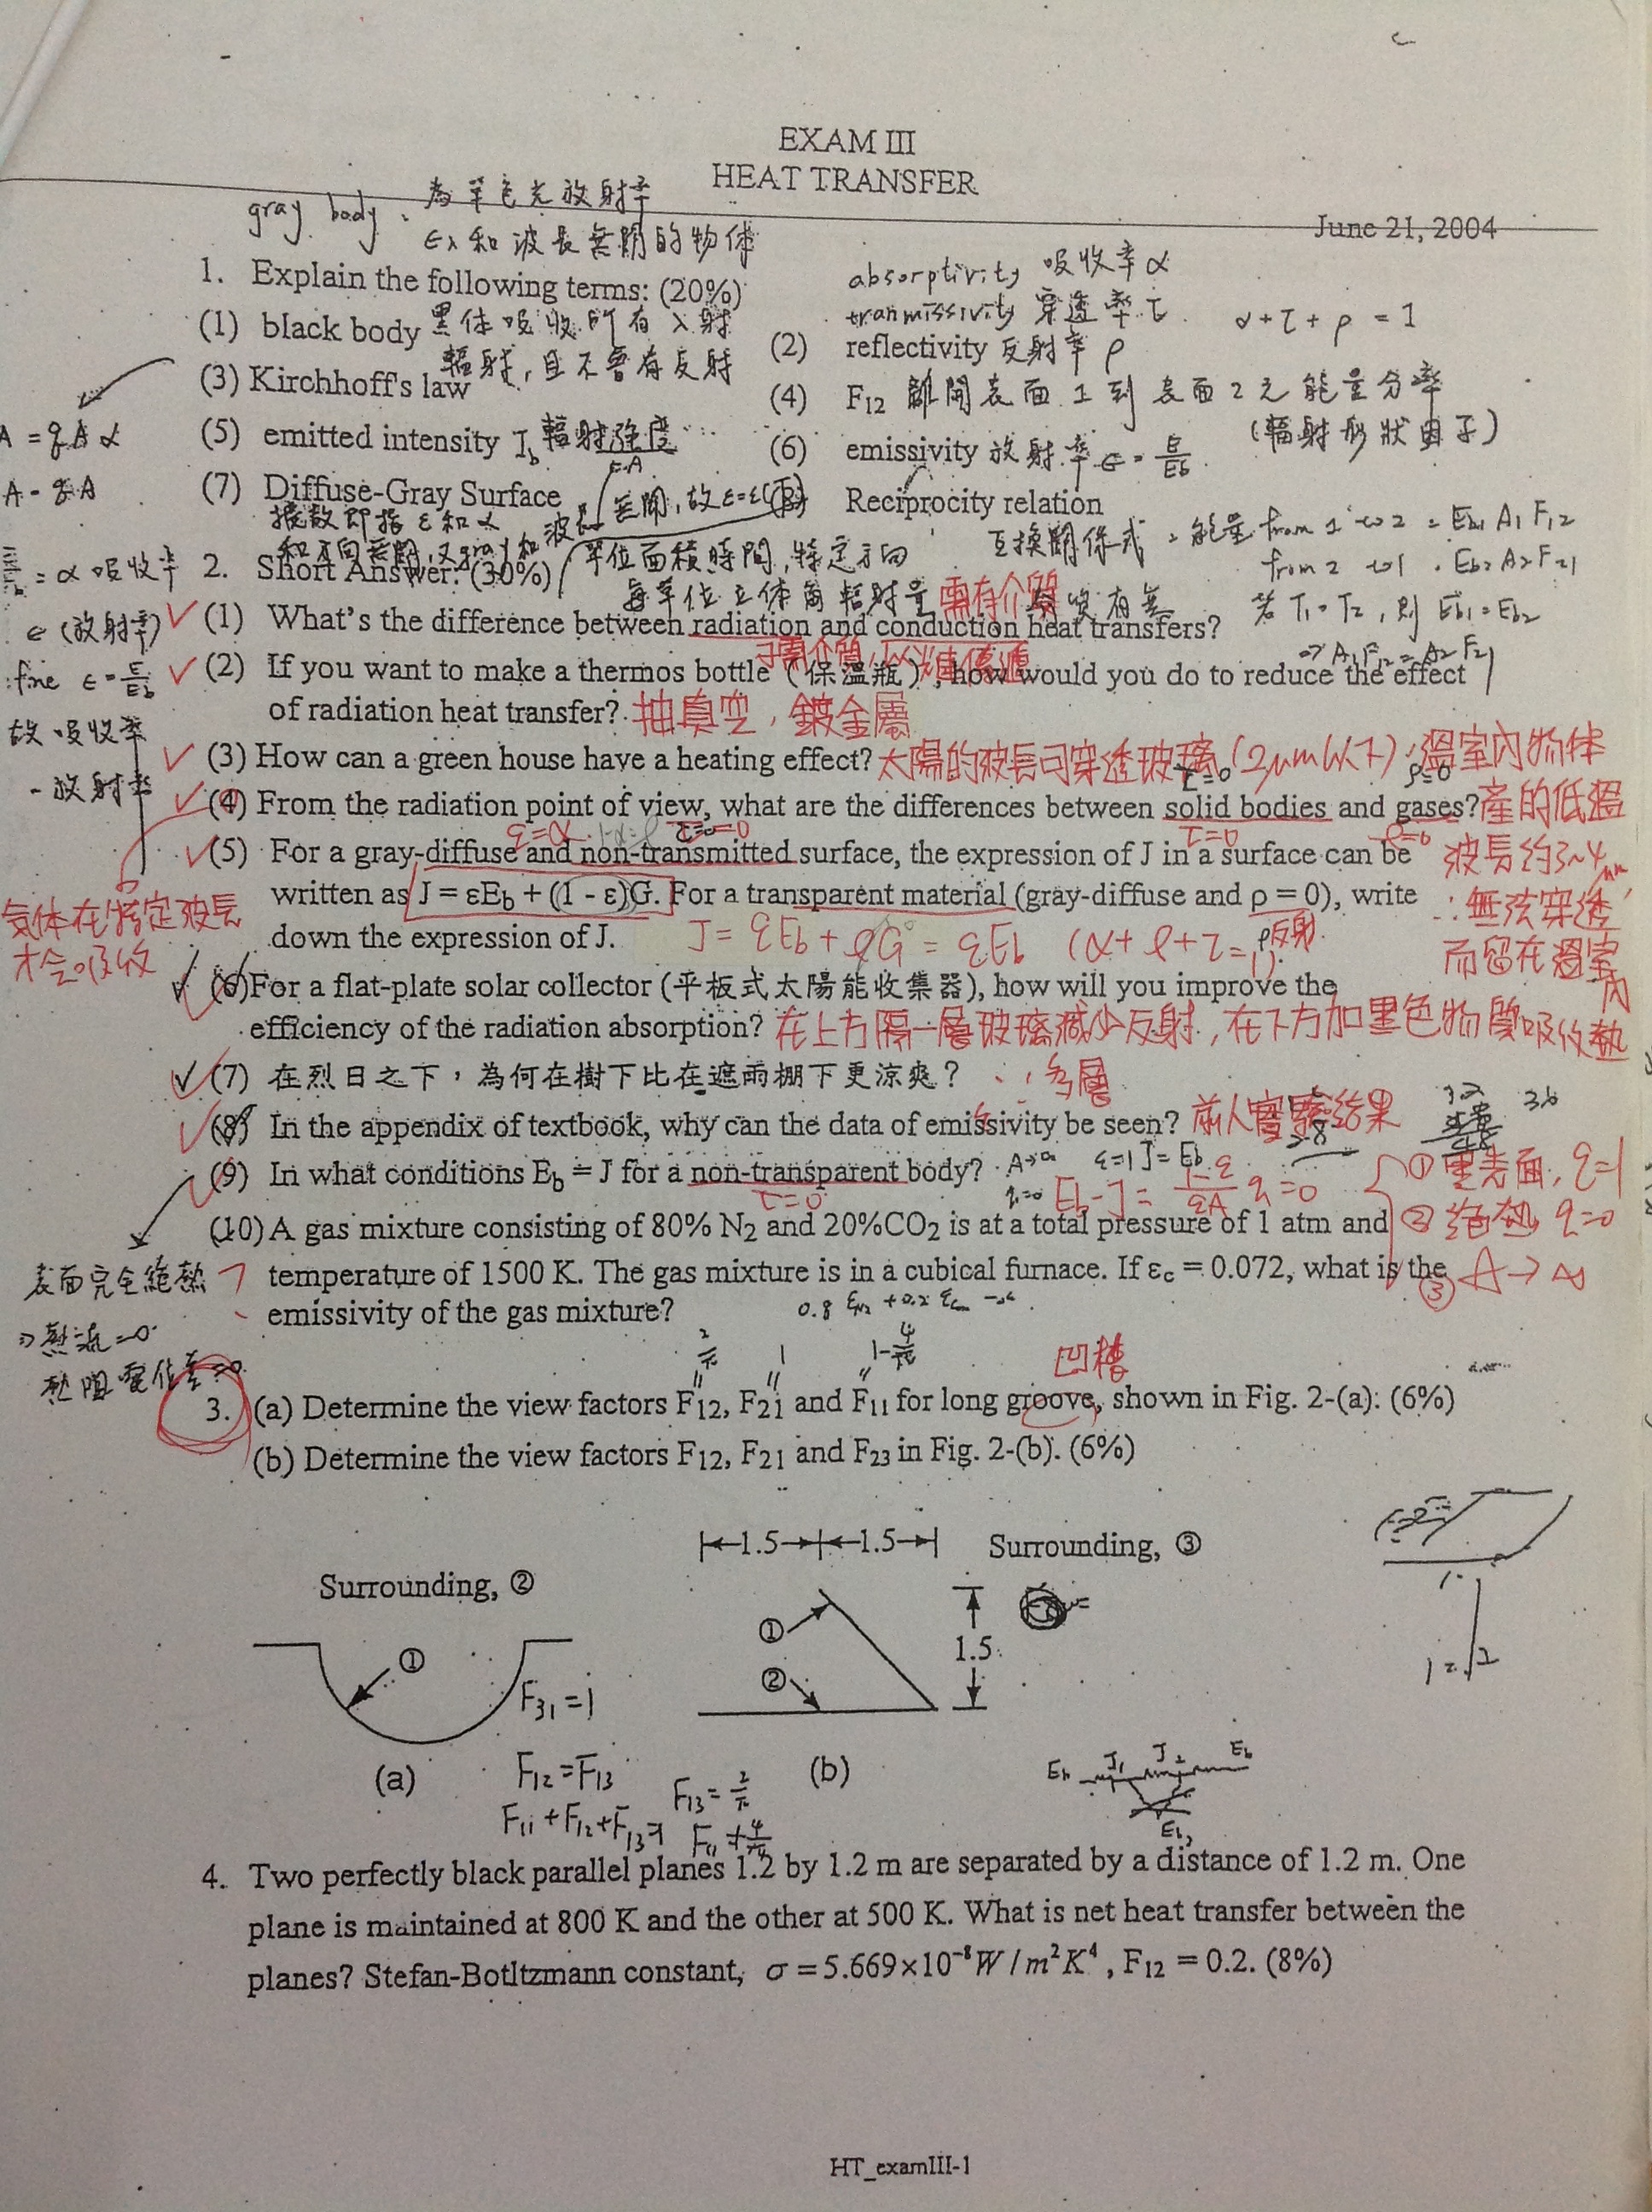 EXAM III
HEAT TRANSFER
June 21, 2004
gray body: 為單色光放射率
ελ和波長無關的物体
1. Explain the following terms: (20%)
absorptivity 吸收率α
tranmissivity 穿透率τ α+τ+ρ=1
(1) black body 黑体吸收所有入射
輻射,且不會有反射
(2) reflectivity 反射率ρ
(3) Kirchhoff's law
(4) F12 離開表面1到表面2之能量分率
(輻射形狀因子)
(5) emitted intensity Ib 輻射強度
(6) emissivity 放射率 ε=E/Eb
(7) Diffuse-Gray Surface
(8) Reciprocity relation
互換關係式: 能量 from 1 to 2 = Eb1 A1 F12
from 2 to 1 = Eb2 A2 F21
若 T1=T2, 則 Eb1=Eb2
⇒ A1F12 = A2F21
單位面積時間,特定方向
每單位立体角輻射量
= α 吸收率
ε (放射率)
ε=E/Eb
故 吸收率
= 放射率
2. Short Answer: (30%)
(1) What's the difference between radiation and conduction heat transfers?
需有介質
(2) If you want to make a thermos bottle (保溫瓶), how would you do to reduce the effect
of radiation heat transfer? 抽真空,鍍金屬
(3) How can a green house have a heating effect? 太陽的波長可穿透玻璃(2μm以下),溫室內物体
產的低溫
波長約3~4μm
∴無法穿透
而留在溫室
內
(4) From the radiation point of view, what are the differences between solid bodies and gases?
τ=0 ρ=0
氣体在特定波長
才会吸收
(5) For a gray-diffuse and non-transmitted surface, the expression of J in a surface can be
written as J = εEb + (1 - ε)G. For a transparent material (gray-diffuse and ρ = 0), write
down the expression of J. J = εEb + ρG = εEb (α+ρ+τ=1) ρ反射
(6) For a flat-plate solar collector (平板式太陽能收集器), how will you improve the
efficiency of the radiation absorption? 在上方隔一層玻璃減少反射,在下方加黑色物質吸收熱
(7) 在烈日之下，為何在樹下比在遮雨棚下更涼爽？ 多層
(8) In the appendix of textbook, why can the data of emissivity be seen? 前人實驗結果
(9) In what conditions Eb = J for a non-transparent body? A→∞ ε=1 J=Eb
τ=0 q=0 Eb-J = (1-ε)/(εA) q = 0
① 黑表面, ε=1
② 絕熱 q=0
③ A→∞
表面完全絕熱
⇒熱流=0
(10) A gas mixture consisting of 80% N2 and 20%CO2 is at a total pressure of 1 atm and
temperature of 1500 K. The gas mixture is in a cubical furnace. If εc = 0.072, what is the
emissivity of the gas mixture?
2/π 1 1-4/π 凹槽
3. (a) Determine the view factors F12, F21 and F11 for long groove, shown in Fig. 2-(a): (6%)
(b) Determine the view factors F12, F21 and F23 in Fig. 2-(b). (6%)
1.5 1.5 Surrounding, ③
Surrounding, ②
① ① ② 1.5
F31=1
(a) (b)
F12=F13
F13=2/π
F11+F12+F13=1
Eb J1 J2 Eb
4. Two perfectly black parallel planes 1.2 by 1.2 m are separated by a distance of 1.2 m. One
plane is maintained at 800 K and the other at 500 K. What is net heat transfer between the
planes? Stefan-Botltzmann constant, σ = 5.669×10⁻⁸W / m²K⁴ , F12 = 0.2. (8%)
HT_examIII-1